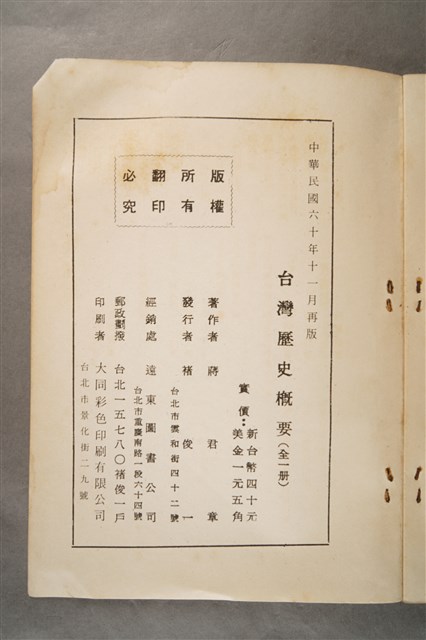 中華民國六十年十一月再版
台灣歷史概要（全一册）
實價：新台幣四十元
美金一元五角
著作者 蔣君章
發行者 褚俊一
台北市雲和街四十二號
經銷處 遠東圖書公司
台北市重慶南路一段六十四號
郵政劃撥 台北一五七八〇褚俊一戶
印刷者 大同彩色印刷有限公司
台北市景化街二九號
版權
所有
翻印
必究